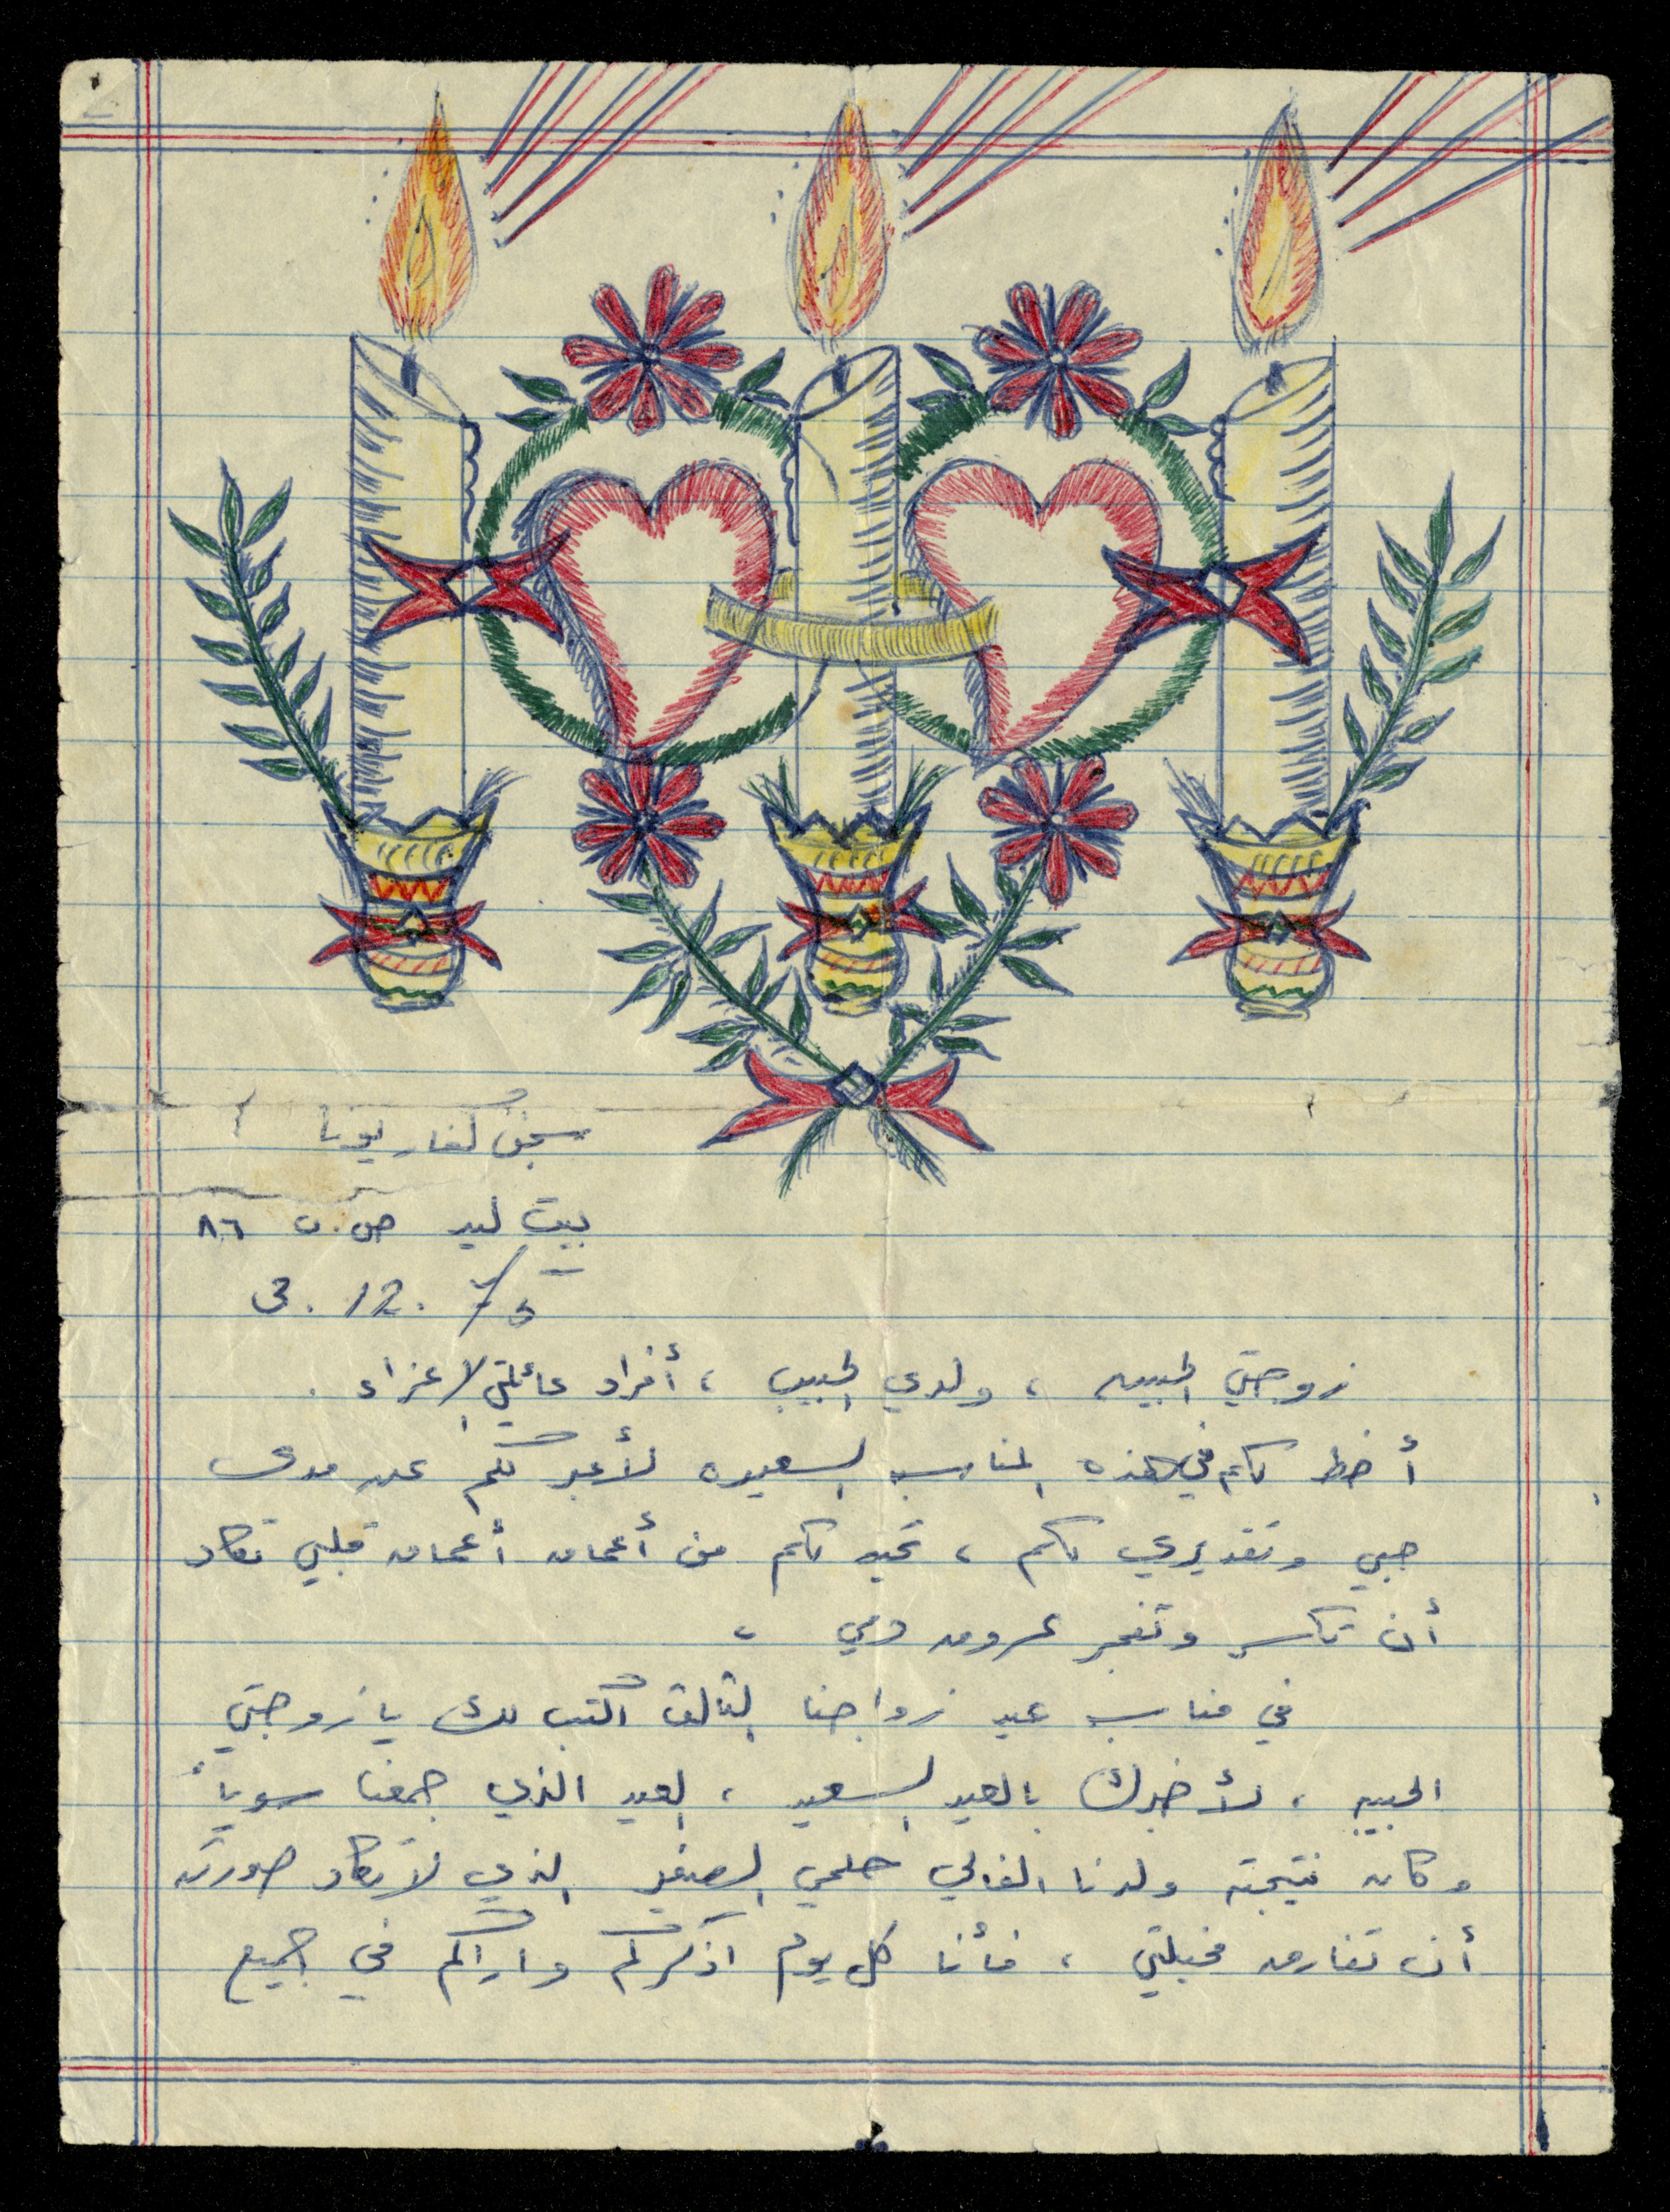 سجن كفار يونا
بيت ليد ص.ب ٨٦
3. 12. 75
زوجتي الحبيبه ، ولدي الحبيب ، أفراد عائلتي الاعزاء .
أخط لكم في هذه المناسبه السعيده لأعبر لكم عن مدى
حبي وتقديري لكم ، تحيه لكم من أعماق أعماق قلبي تكاد
أن تكسر وتفجر عروق دمي ،
في مناسبه عيد زواجنا الثالث اكتب لك يا زوجتي
الحبيبه ، لأخبرك بالعيد السعيد ، العيد الذي جمعنا سوياً
وكان نتيجته ولدنا الغالي حلمي الصغير الذي لا تكاد صورته
أن تفارق مخيلتي ، فأنا كل يوم اذكركم واراكم في جميع